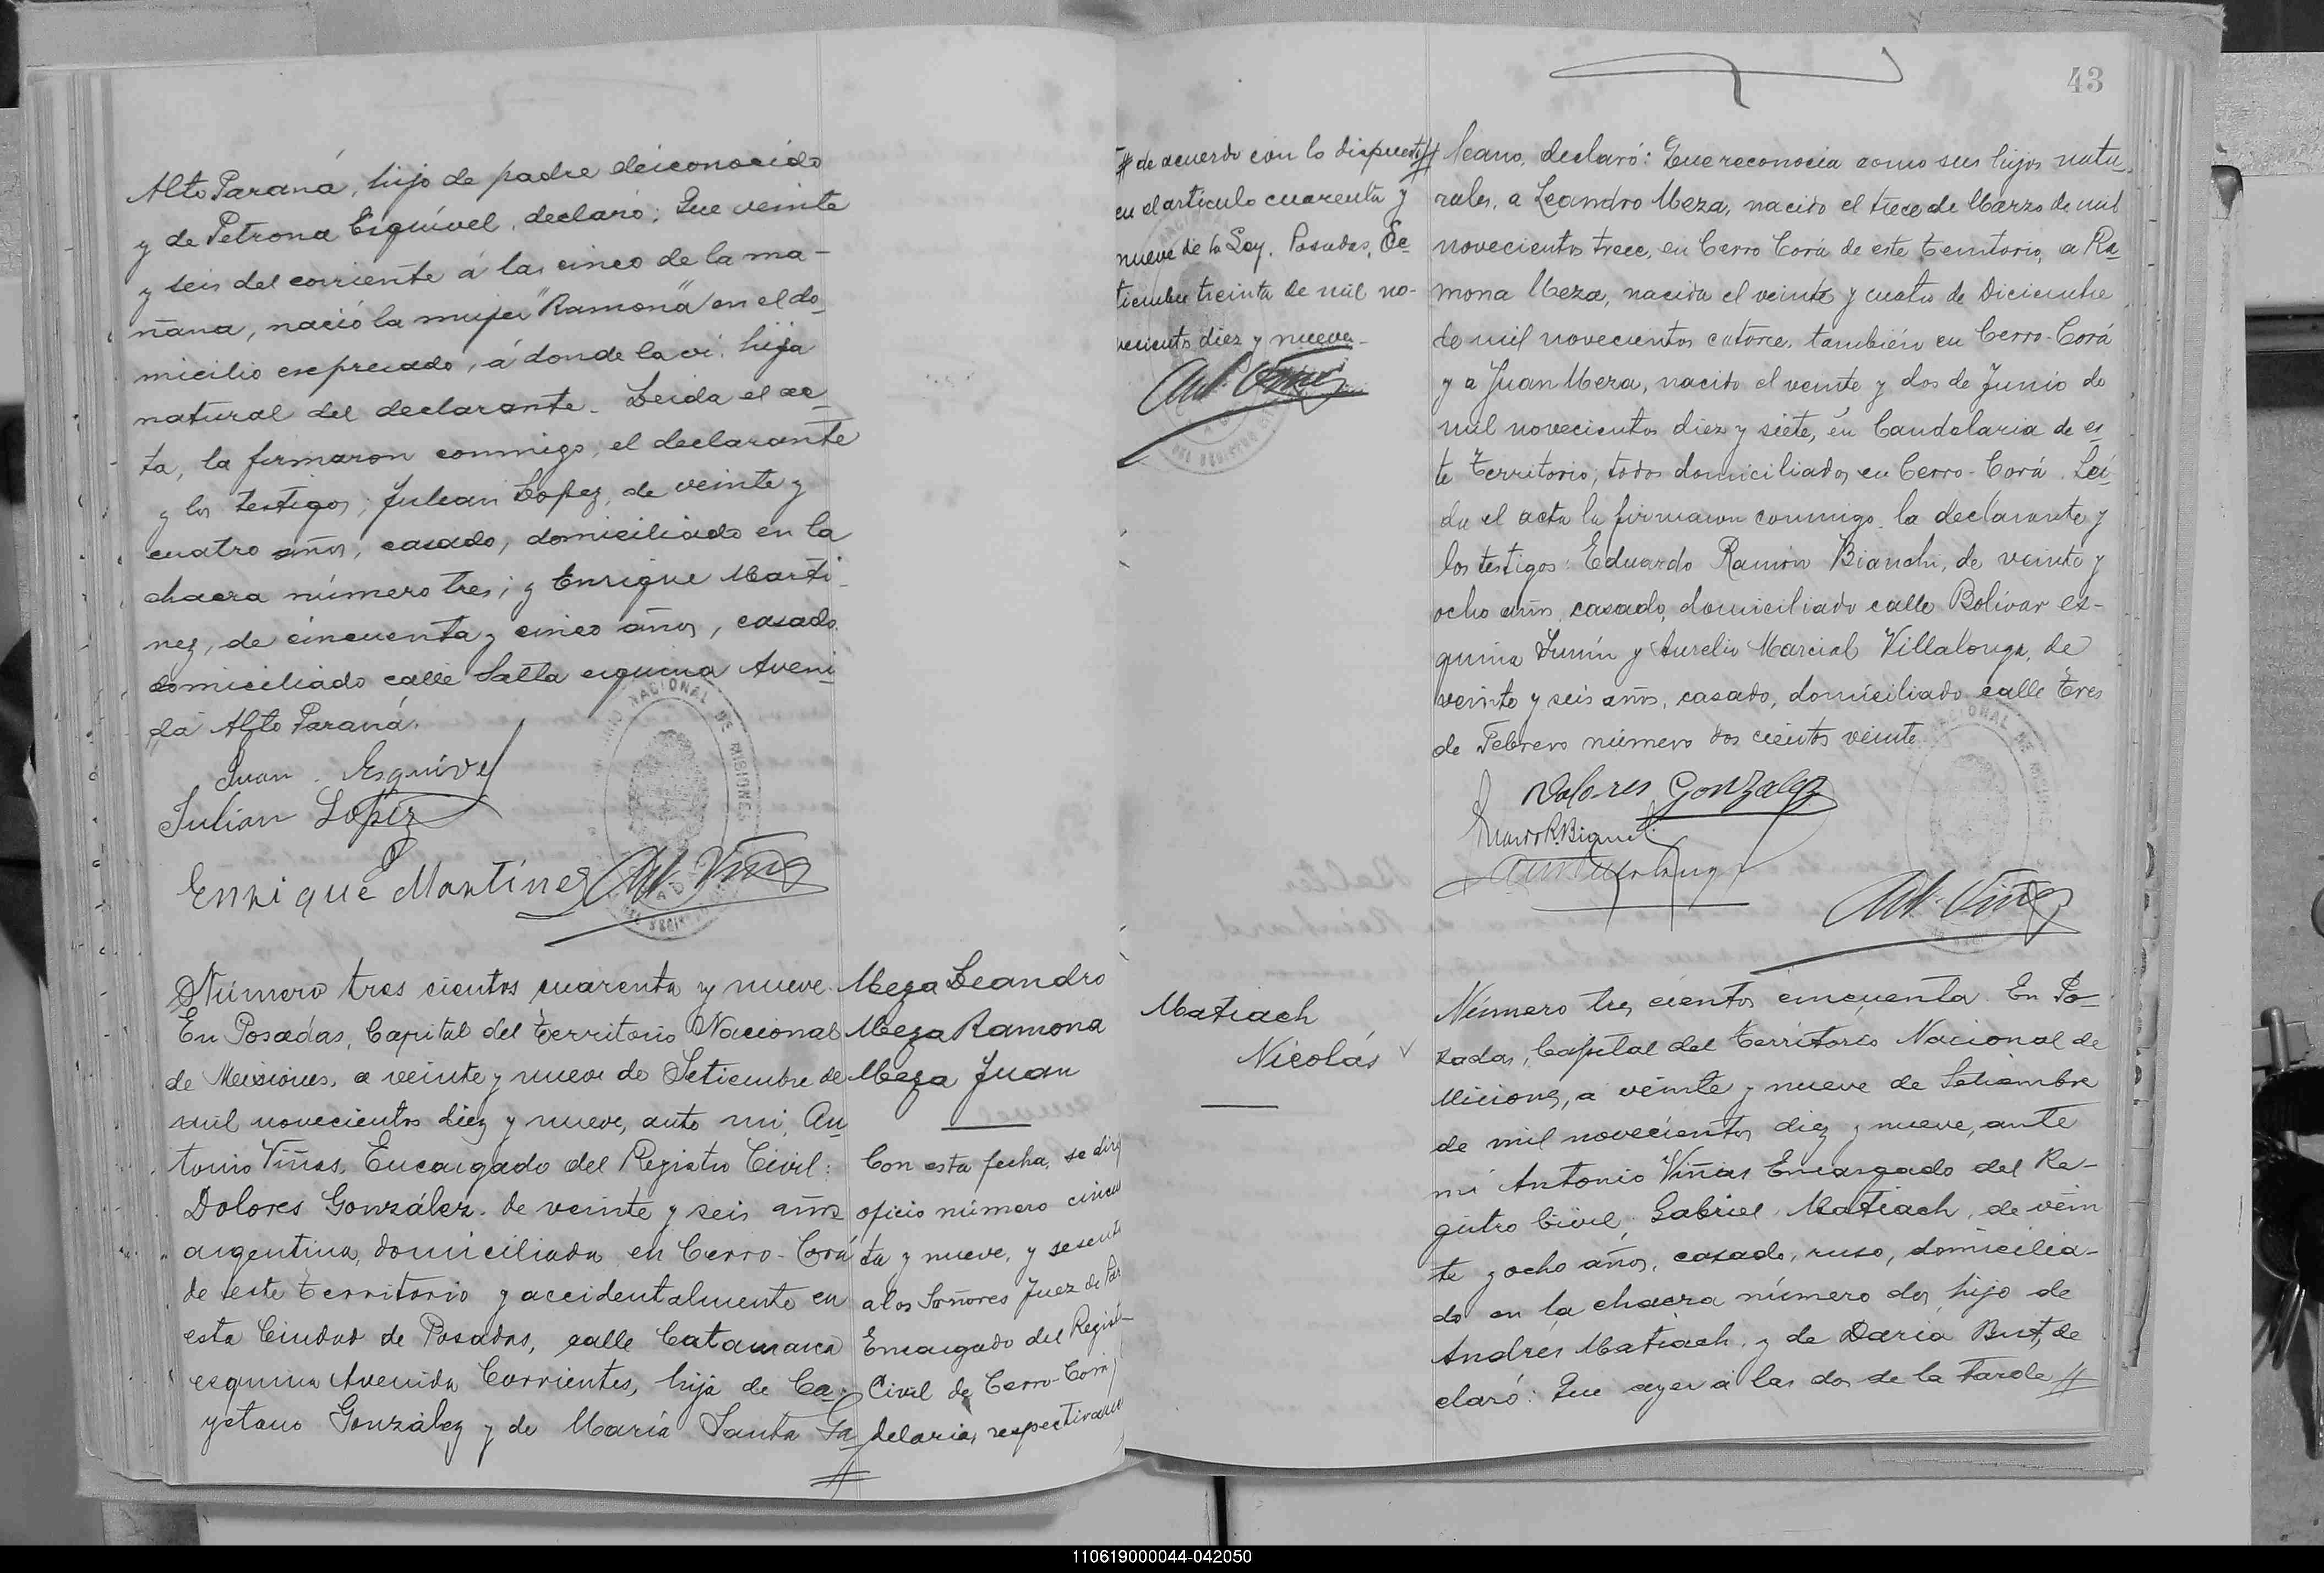 Alto Paraná, hijo de padre desconocido
y de Petrona Esquivel, declaró: Que veinte
y seis del corriente á las cinco de la ma-
ñana, nació la mujer "Ramona" en el do-
micilio expresado, á donde la vi. hija
natural del declarante. Leida el ac-
ta, la firmaron conmigo, el declarante
y los testigos; Julian Lopez, de veinte y
cuatro años, casado, domiciliado en la
chacra número tres; y Enrique Marti-
nez, de cincuenta y cinco años, casado.
domiciliado calle Salta esquina Aveni-
da Alto Paraná.
Juan Esquivel
Julian Lopez
Enrique Martinez Ant. Viñas
Número tres cientos cuarenta y nueve.
En Posadas, Capital del Territorio Nacional
de Misiones, a veinte y nueve de Setiembre de
mil novecientos diez y nueve, ante mi, An-
tonio Viñas, Encargado del Registro Civil:
Dolores González, de veinte y seis años
argentina, domiciliada en Cerro-Corá
de este Territorio y accidentalmente en
esta Ciudad de Posadas, calle Catamarca
esquina Avenida Corrientes, hija de Ca-
yetano González y de María Santa Ga
#
Meza Leandro
Meza Ramona
Meza Juan
Con esta fecha, se dirij
oficio número cincu
ta y nueve, y sesent
a los Señores Juez de Paz
Encargado del Regist
Civil de Cerro-Corá y
delaria, respectivame
43
# de acuerdo con lo dispuesto
en el artículo cuarenta y
nueve de la Ley. Posadas, Se-
tiembre treinta de mil no-
vecientos diez y nueve.
Ant. Viñas
# leano, declaró: Que reconocía como sus hijos natu-
rales, a Leandro Meza, nacido el trece de Marzo de mil
novecientos trece, en Cerro Corá de este Territorio, a Ra-
mona Meza, nacida el veinte y cuatro de Diciembre
de mil novecientos catorce, también en Cerro-Corá
y a Juan Meza, nacido el veinte y dos de Junio de
mil novecientos diez y siete, en Candelaria de es-
te Territorio, todos domiciliados en Cerro-Corá. Leí-
da el acta la firmaron conmigo, la declarante y
los testigos: Eduardo Ramón Bianchi, de veinte y
ocho años, casado, domiciliado calle Bolívar es-
quina Junín y Aurelio Marcial Villalonga, de
veinte y seis años, casado, domiciliado calle Tres
de Febrero número dos cientos veinte.
Dolores Gonzalez
Ant. Viñas
Matiach
Nicolás
Número tres cientos cincuenta. En Po-
sadas, Capital del Territorio Nacional de
Misiones, a veinte y nueve de Setiembre
de mil novecientos diez y nueve, ante
mi Antonio Viñas Encargado del Re-
gistro Civil, Gabriel Matiach, de vein
te y ocho años, casado, ruso, domicilia-
do en la chacra número dos, hijo de
Andrés Matiach, y de Daria But, de
claró: Que ayer á las dos de la tarde #
110619000044-042050